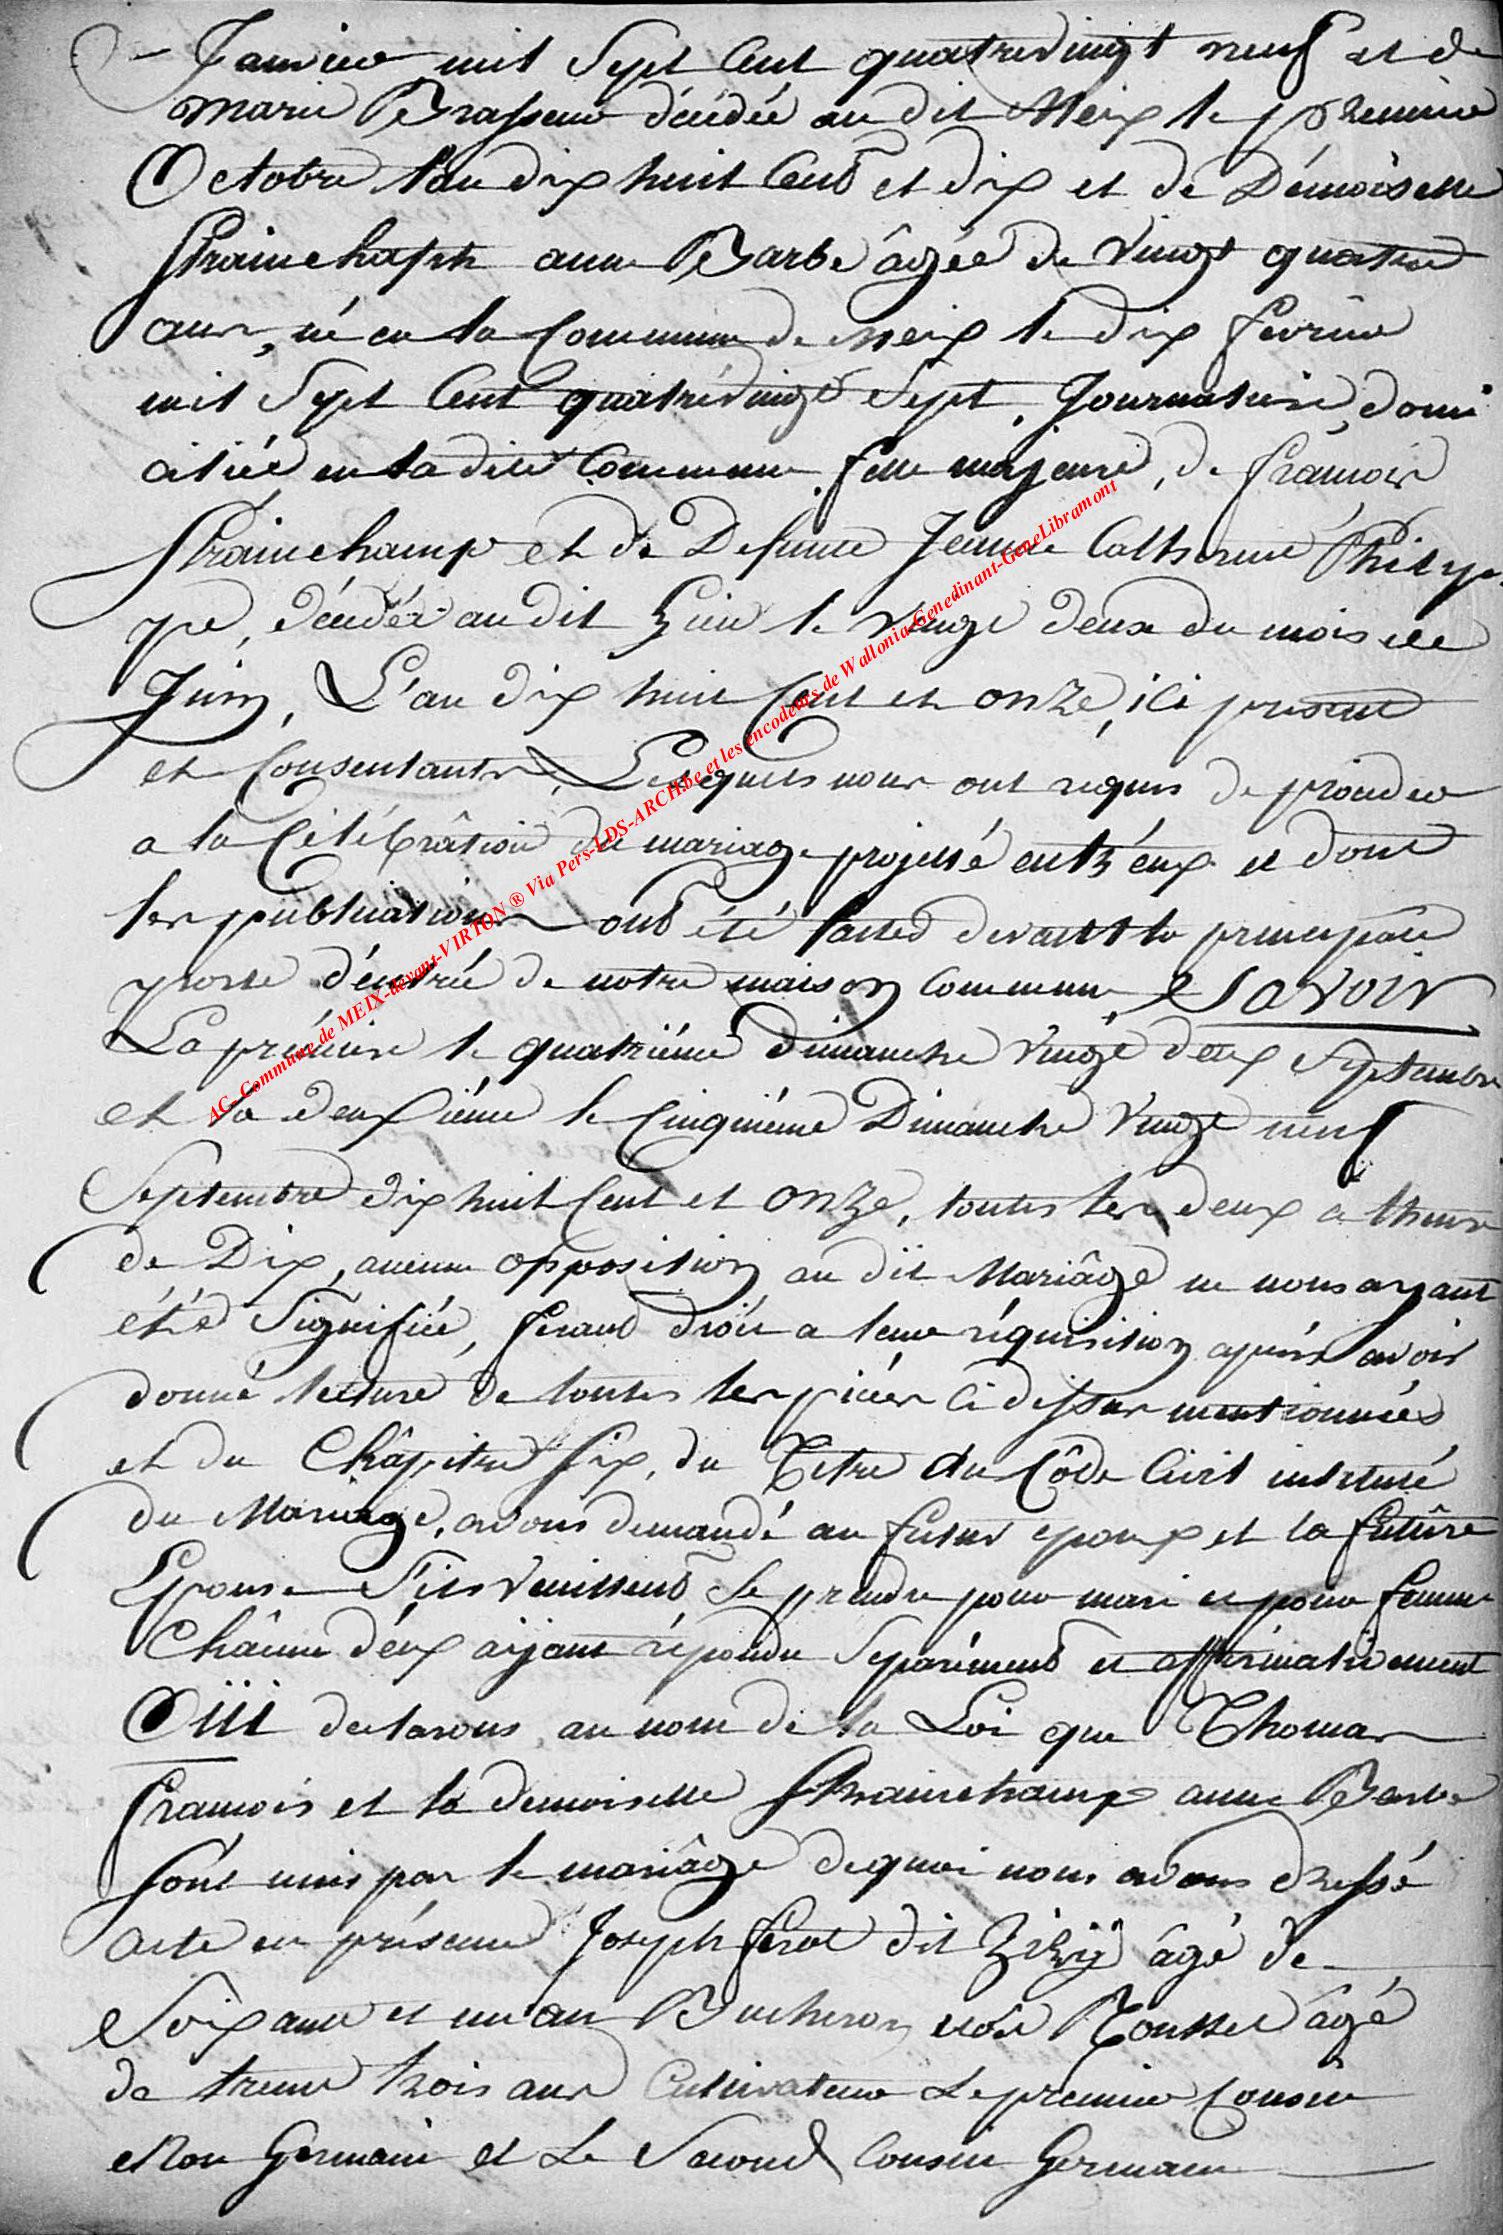 Janvier mil Sept Cent quatrevingt neuf et de
Marie Brasseur décédée au dit Meix le premier
Octobre l'an dix huit Cent et dix et de Démoiselle
Strainchamp anne Barbe âgée de Vingt quatre
ans, né en la Commune de Meix le dix février
mil Sept Cent quatrévingt Sept, Journaliere, domi
ciliée en la dite Commune, fille majeure, de françois
Strainchamp et de Defunte Jeanne Catherine Philip
pé, décédée au dit lieu le Vingt deux du mois de
Juin, L'an dix huit Cent et onze, ici présent
et Consentants, Lesquels nous ont réquis de procéder
a la Célébrâtion du mariage projetté entr'éux et dont
les publications ont été faites devant la principale
porte d'éntrée de notre maison commune, Savoir
La prémiere le quatriéme dimanche Vingt deux Septembre
et la deuxiéme le Cinquiéme Dimanche Vingt neuf
Septembre dix huit Cent et onze, toutes les deux a l'heure
de Dix, aucune opposition au dit Mariâge ne nous ayant
été Signifiée, fesant droit a leur réquisition, aprés avoir
donné lecture de toutes les piéces ci dessus mentionnées
et du Châpitre Six, du Titre du Côde Civil intitulé
du Mariage, avons demandé au futur epoux et la future
Epouse S'ils Veullent Se prendre pour mari et pour femme
Châcun d'éux aÿant répondu Séparément et affirmativement
Oui déclarons, au nom de la Loi que Thomas
françois et la demoiselle Strainchamp anne Barbe
sont unis par le mariâge dequoi nous avons dressé
acte en présence Joseph ferot dit Zizy âgé de
Soixante et un an Bucheron Tousset âgé
de trente trois ans Cultivateur Le premier Cousin
Non Germain et Le Second Cousin Germain
AG-Commune de MEIX-devant-VIRTON ® Via Pers-LDS-ARCH.be et les encodeurs de Wallonia-Genedinant-GeneLibramont